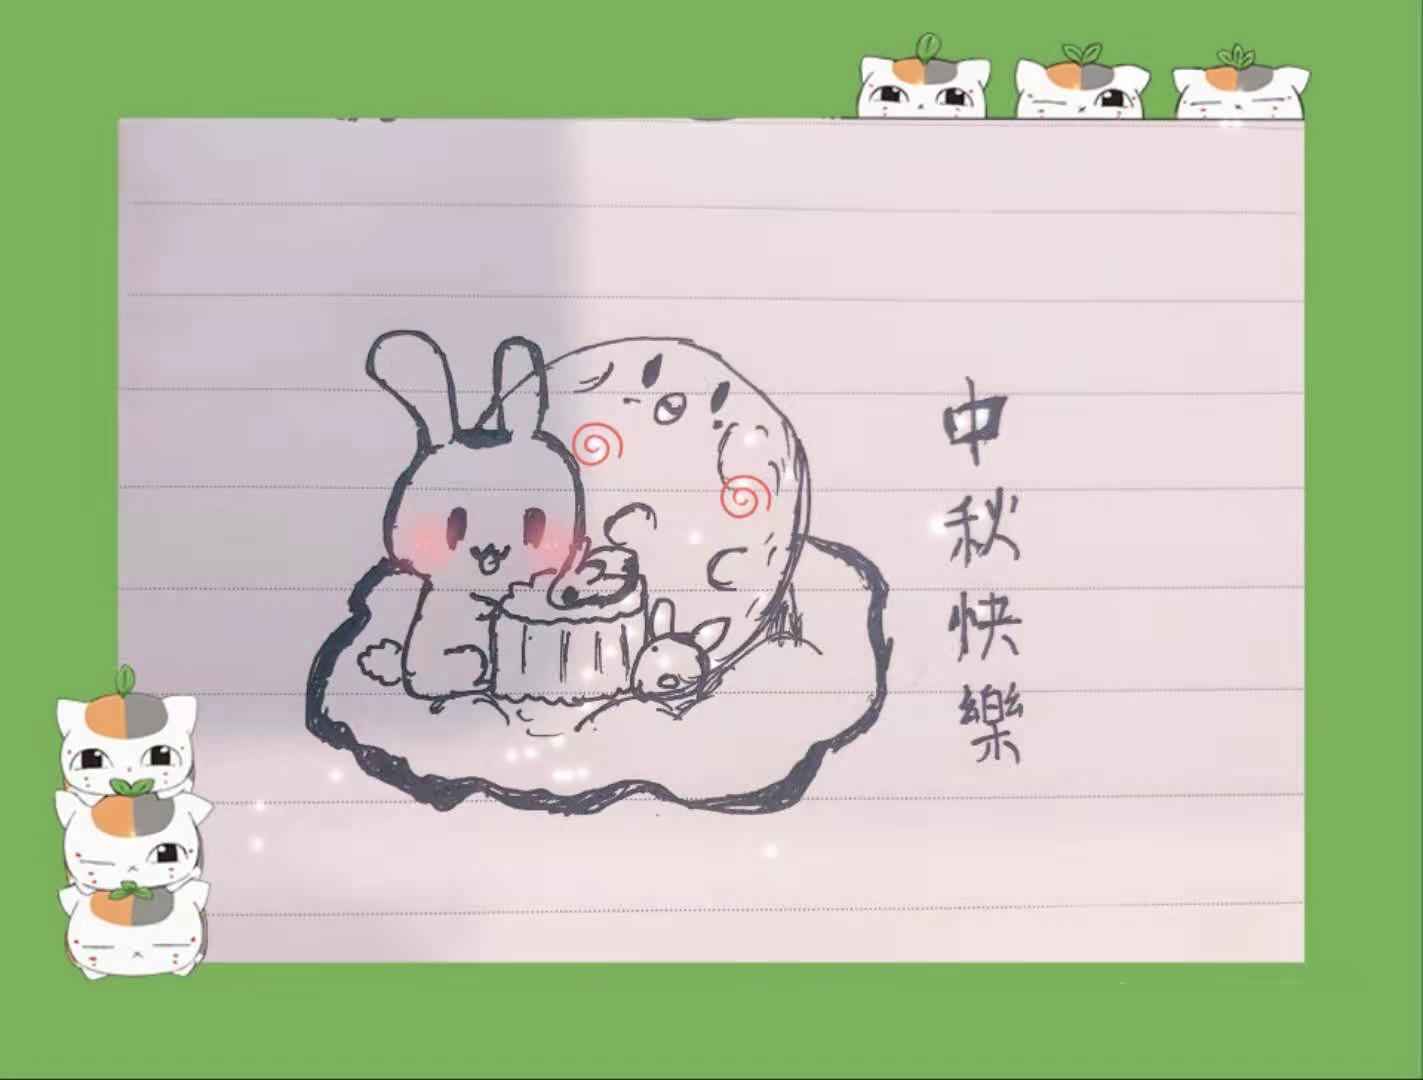 中秋快樂